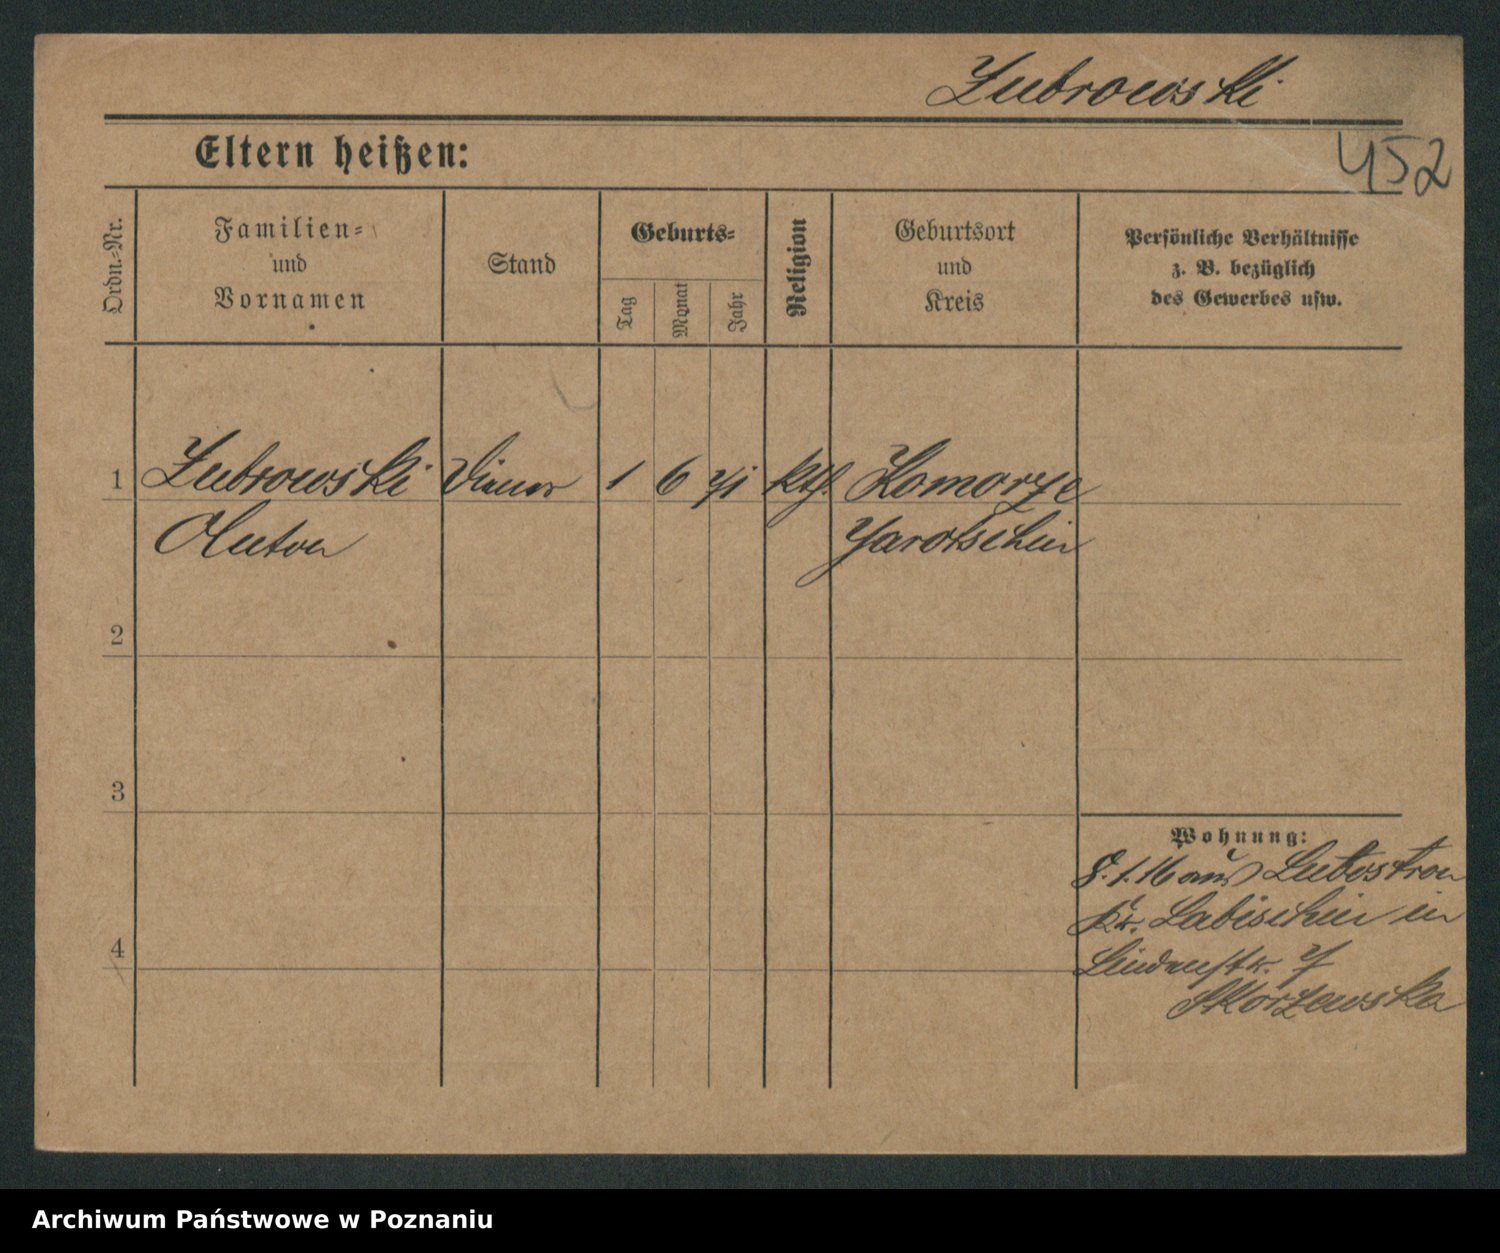 Zubrowski
452
Eltern heißen:
Ordn.-Nr.
Familien-
und
Vornamen
Stand
Geburts-
Tag
Monat
Jahr
Religion
Geburtsort
und
Kreis
Persönliche Verhältnisse
z. B. bezüglich
des Gewerbes usw.
1 Zubrowski Diener 1 6 71 kth. Komorze
Anton Jarotschin
2
3
Wohnung:
8.1.16 aus Lubostron
Kr. Labischin in
4
Lindenstr. 7
Skorzewska
Archiwum Państwowe w Poznaniu